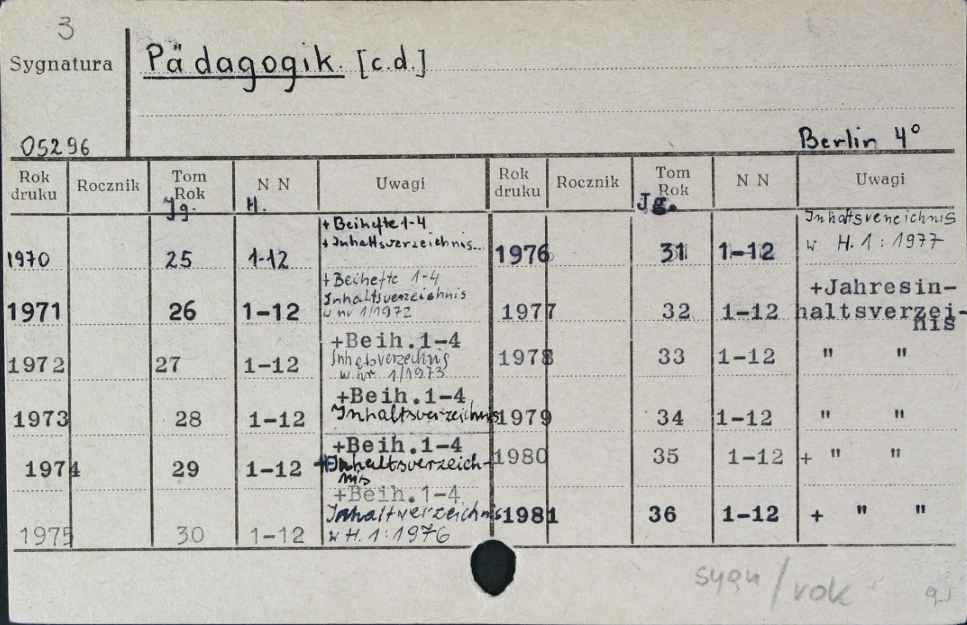 3
Sygnatura
Pädagogik [c.d.]
05296
Berlin 4°
Rok druku Rocznik Tom Rok N N Uwagi Rok druku Rocznik Tom Rok N N Uwagi
Jg. H. Jg.
1970 25 1-12 + Beihefte 1-4
+ Inhaltsverzeichnis..
1971 26 1-12 + Beihefte 1-4
Inhaltsverzeichnis
w nr 1/1972
1972 27 1-12 +Beih.1-4
Inhaltsverzeichnis
w nr. 1/1973
1973 28 1-12 +Beih.1-4
Inhaltsverzeichnis
1974 29 1-12 +Beih.1-4
+Inhaltsverzeich-
nis
1975 30 1-12 +Beih.1-4
Inhaltverzeichnis
w H.1:1976
1976 31 1-12 Inhaltsverzeichnis
w H.1:1977
1977 32 1-12 +Jahresin-
haltsverzei-
nis
1978 33 1-12 " "
1979 34 1-12 " "
1980 35 1-12 + " "
1981 36 1-12 + " "
sygn/rok